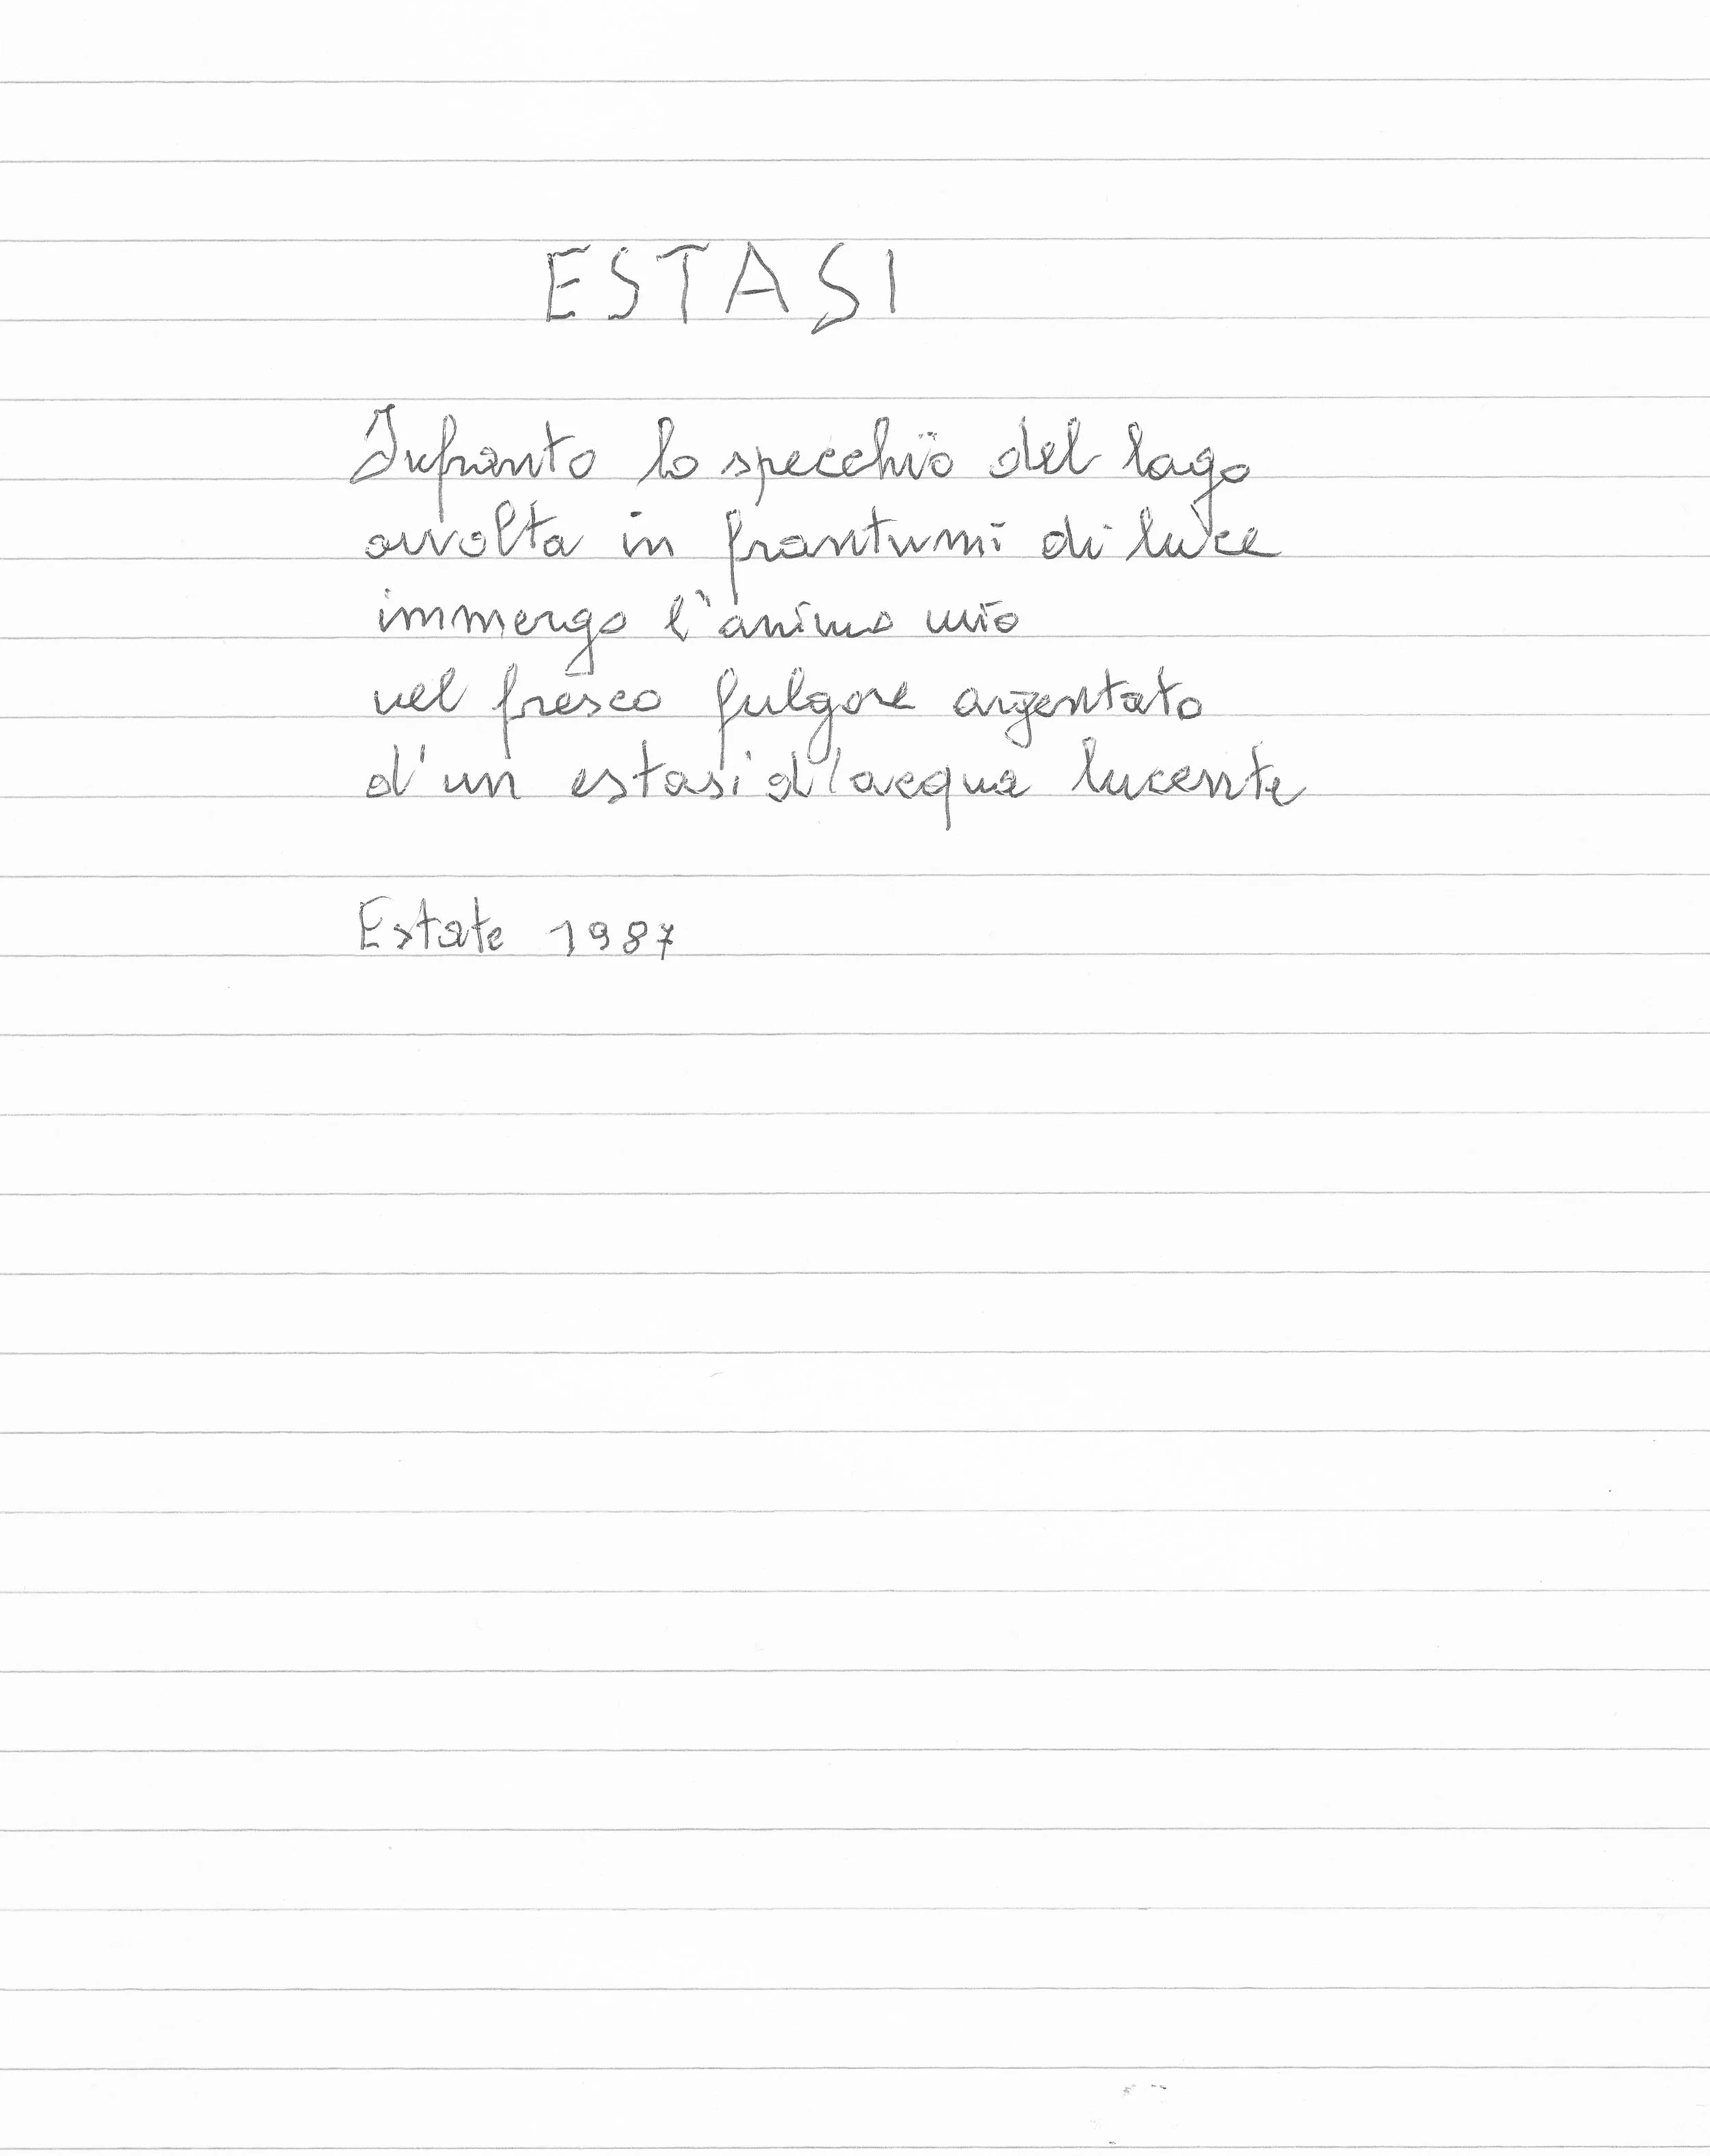 ESTASI
Infranto lo specchio del lago
avvolta in frantumi di luce
immergo l'animo mio
nel fresco fulgore argentato
d'un estasi d'acqua lucente
Estate 1987